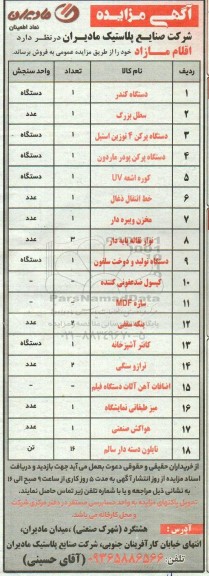 آگهی مزایده
مادیران
نماد اطمینان
شرکت صنایع پلاستیک مادیران در نظر دارد
اقلام مازاد خود را از طریق مزایده عمومی به فروش برساند.
ردیف نام کالا تعداد واحد سنجش
۱ دستگاه کندر ۱ دستگاه
۲ سطل بزرگ ۱ عدد
۳ دستگاه پرکن ۴ توزین استیل ۱ دستگاه
۴ دستگاه پرکن پودر ماردون ۱ دستگاه
۵ کوره اشعه UV ۱ دستگاه
۶ خط انتقال ذغال ۱ عدد
۷ مخزن ویبره دار ۱ عدد
۸ نوار نقاله پایه دار ۳ عدد
۹ دستگاه تولید و دوخت سلفون ۱ دستگاه
۱۰ کپسول ضدعفونی کننده
۱۱ سازه MDF
۱۲ پنکه سقفی عدد
۱۳ کانتر آشپزخانه ۱ دستگاه
۱۴ ترازو سنگی ۲ عدد
۱۵ اضافات آهن آلات دستگاه فیلم - -
۱۶ میز طبقاتی نمایشگاه ۱ عدد
۱۷ هواکش صنعتی ۱ عدد
۱۸ نایلون دسته دار سالم ۱۶ تن
از خریداران حقیقی و حقوقی دعوت بعمل می آید جهت بازدید و دریافت
اسناد مزایده از روز انتشار آگهی به مدت ۵ روز کاری از ساعت ۹ صبح الی ۱۶
به نشانی ذیل مراجعه و یا با شماره تلفن زیر تماس حاصل نمایند.
آدرس: هشتگرد (شهرک صنعتی)، میدان مادیران،
انتهای خیابان کارآفرینان جنوبی، شرکت صنایع پلاستیک مادیران
تلفن ۰۹۳۶۵۸۸۶۵۶۶ (آقای حسینی)